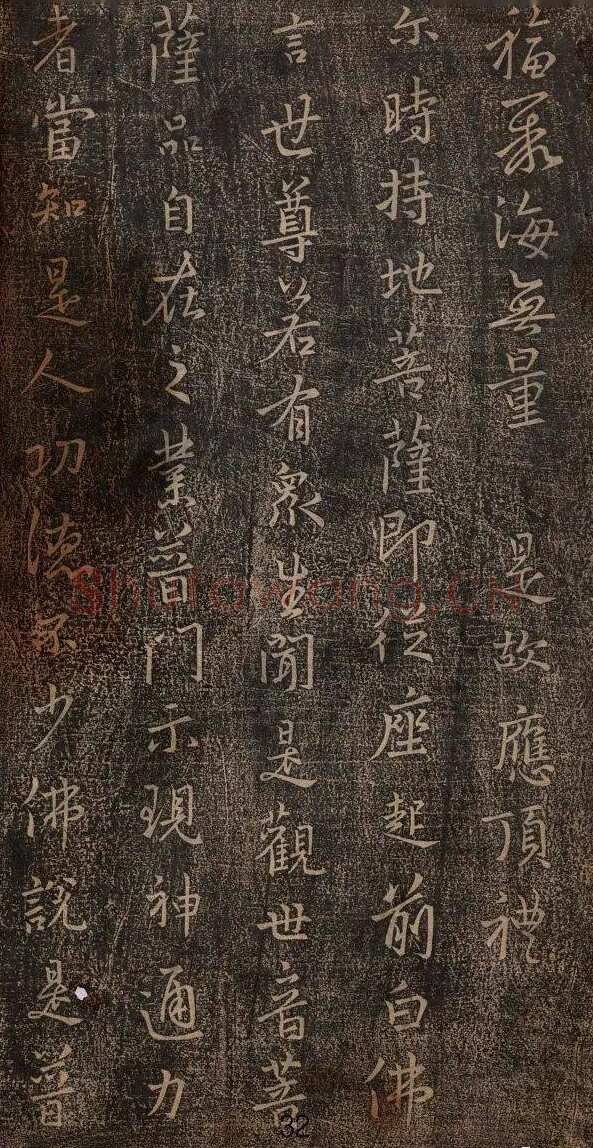 福聚海無量 是故應頂禮
尒時持地菩薩即從座起前白佛
言世尊若有眾生聞是觀世音菩
薩品自在之業普門示現神通力
者當知是人功德不少佛說是普
Shufawang.CN
32